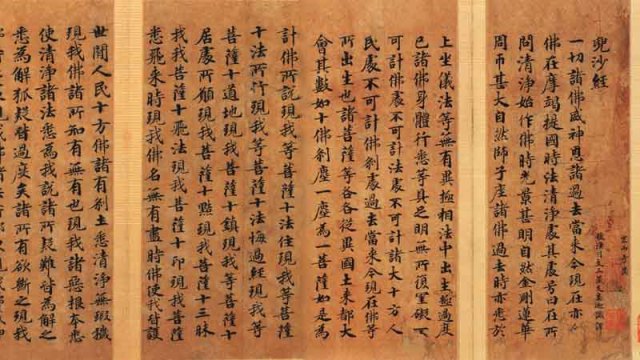 兜沙經
後漢月支三藏支婁迦讖譯
一切諸佛威神恩諸過去當來今現在亦尒
佛在摩竭提國時法清淨處其處号曰在所
問清淨始作佛時光景甚明自然金剛蓮華
周帀甚大自然師子座諸佛過去時亦悉於
上坐儀法等無有異極相法中出生極過度
已諸佛身體行悉等具之明無所罣礙不
可計佛處不可計法處不可計諸大十方人
民處不可計佛刹處過去當來今現在等
所出生也諸菩薩等各各從異國土來都大
會其數如十佛刹塵一塵為一菩薩如是為
計佛所說現我等菩薩十法住現我等菩薩
十法所行現我等菩薩十法悔過經現我等
菩薩十道地現我菩薩十鎮現我等菩薩十
居處所願現我菩薩十黠現我菩薩十三昧
我我菩薩十飛法現我菩薩十印現我菩薩
悉飛來時現我佛名無有盡時佛使我護
世間人民十方佛諸有刹土悉清淨無瑕穢
現我佛諸所知有無有也現我諸惡根本悉
使清淨諸法悉為我說諸所疑難皆為解之
悉為解狐疑過諸所有欲斷之現我